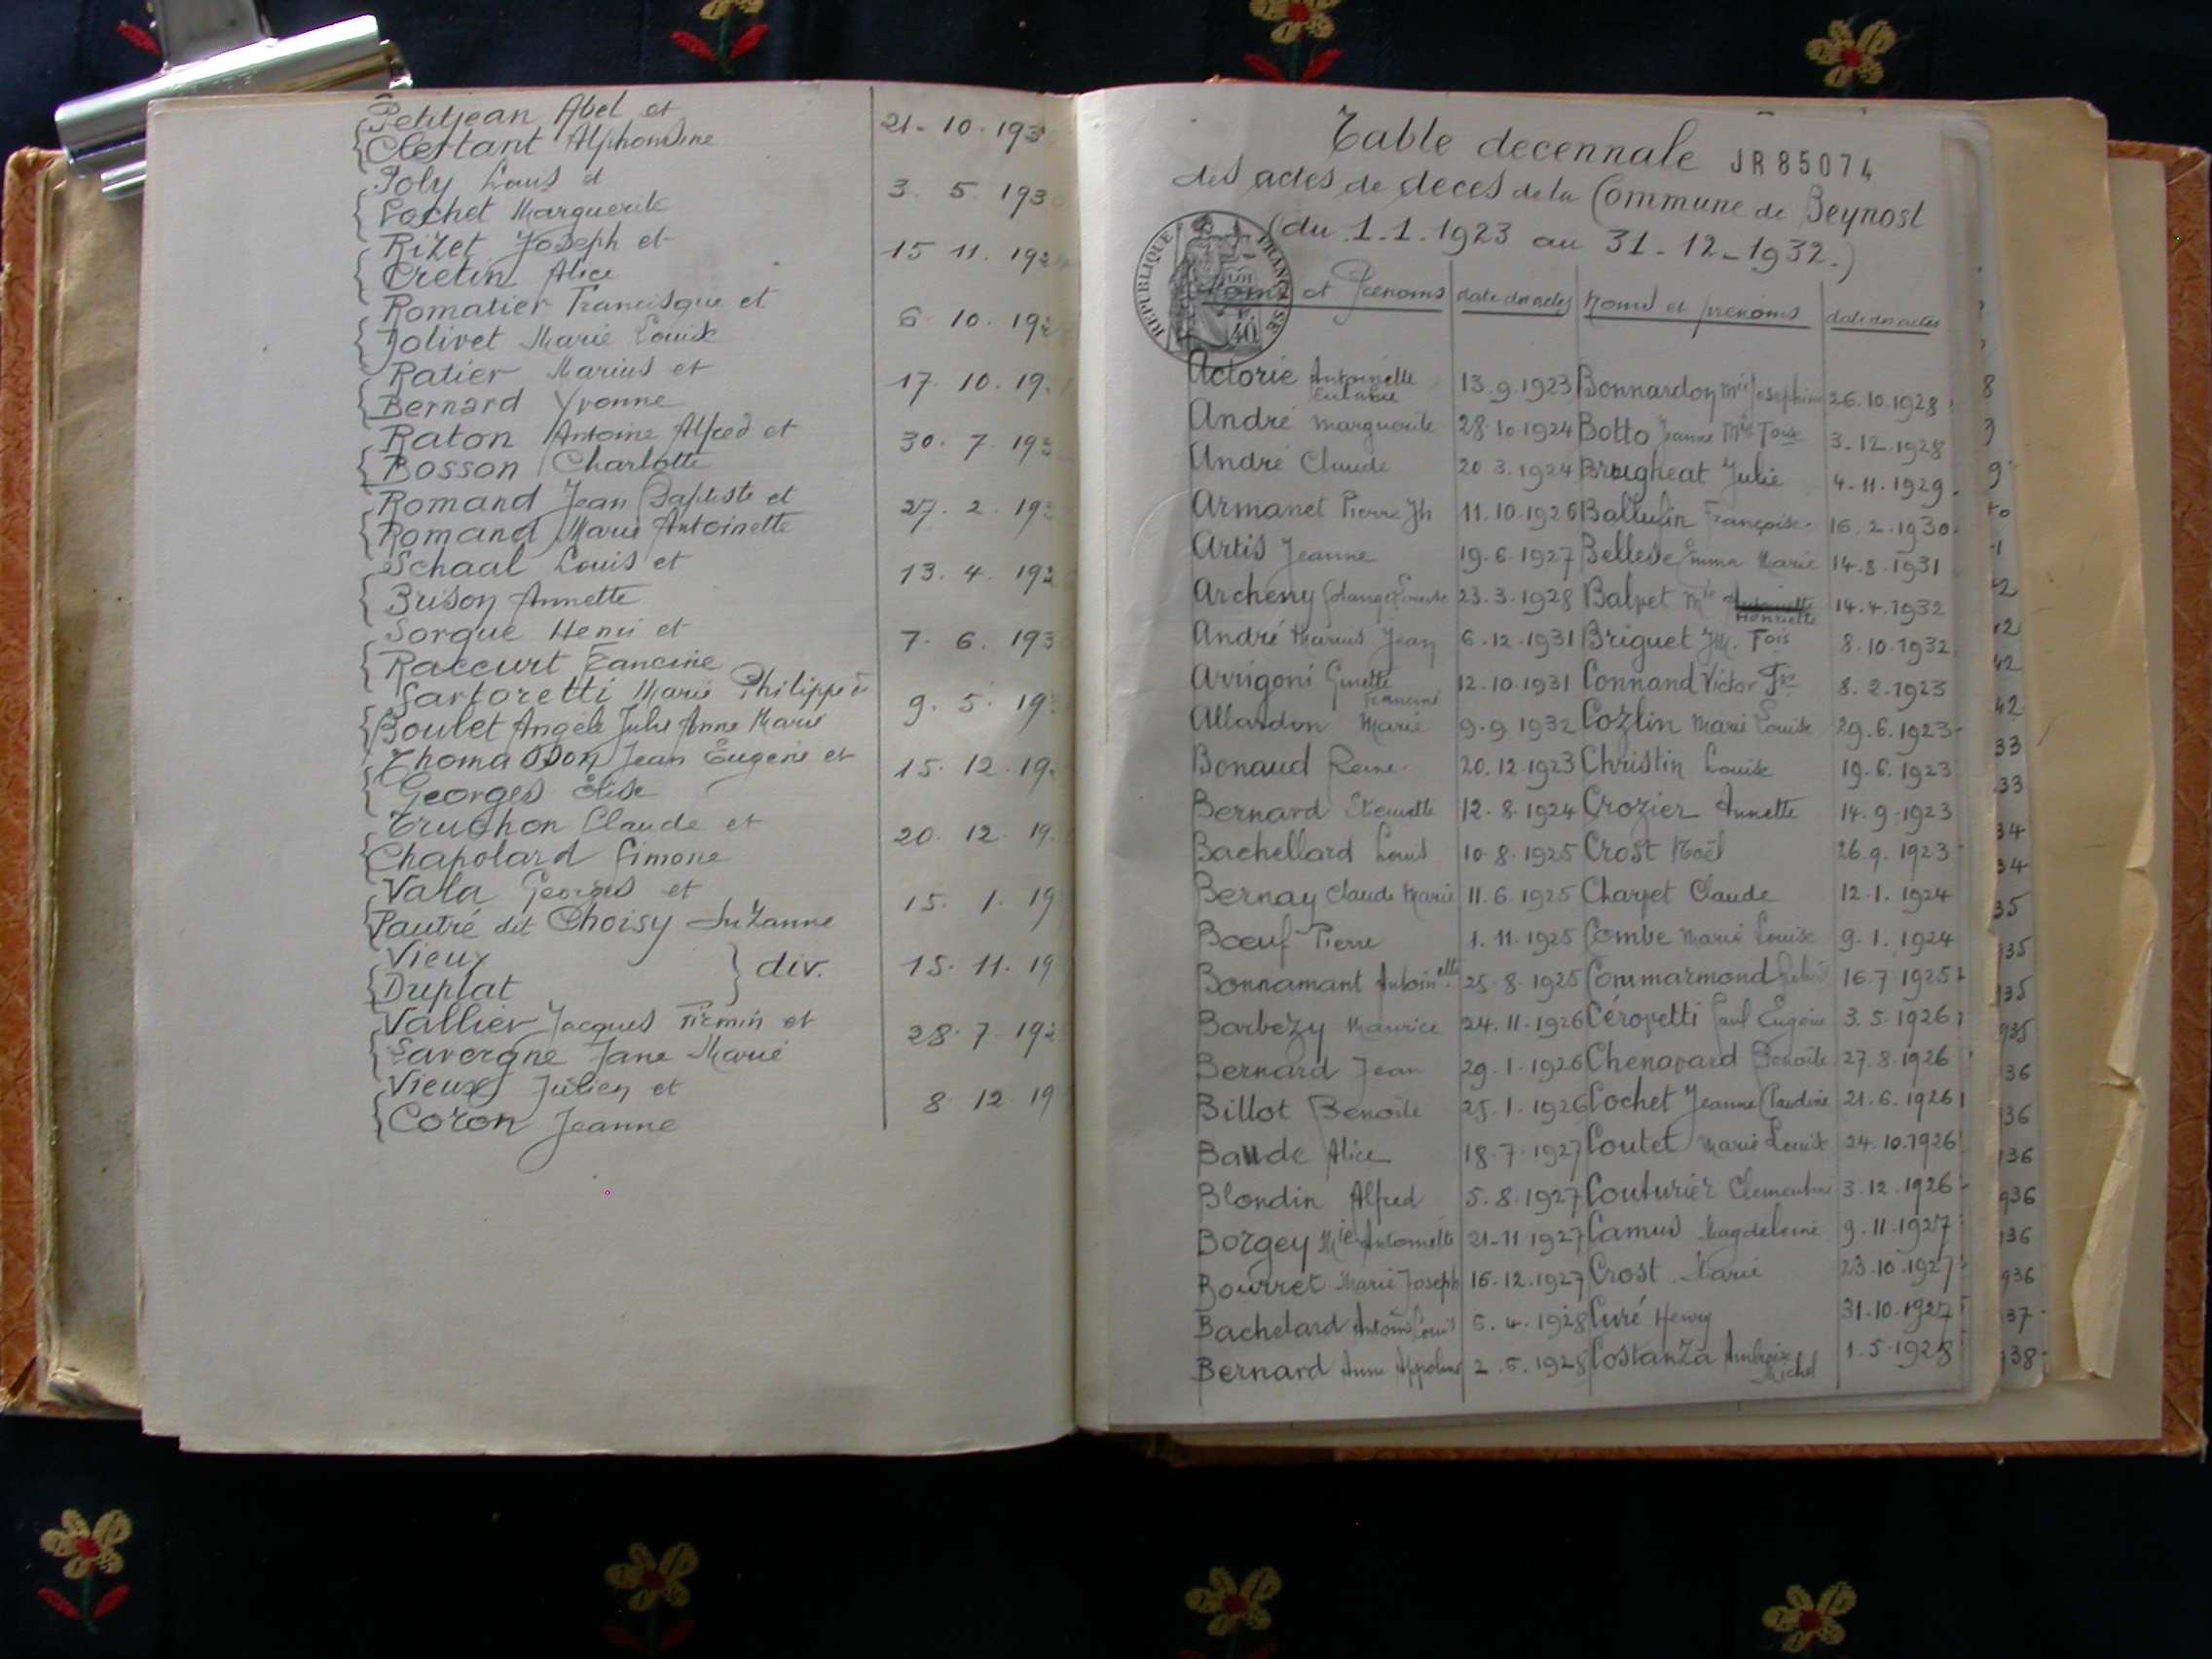 Petitjean Abel et
Clertant Alphonsine
21-10.193
Joly Louis et
Cochet Marguerite
3. 5. 1930
Rizet Joseph et
Cretin Alice
15 11. 192
Romatier Francisque et
Jolivet Marie Louise
6. 10. 192
Ratier Marius et
Bernard Yvonne
17. 10. 19.
Raton Antoine Alfred et
Bosson Charlotte
30. 7. 193
Romand Jean Baptiste et
Romand Marie Antoinette
27. 2. 19
Schaal Louis et
Brison Annette
13. 4. 192
Sorgue Henri et
Raccurt Francine
7. 6. 193
Sartoretti Marie Philippe et
Boulet Angèle Julie Anne Marie
9. 5. 19
Thomasson Jean Eugène et
Georges Elise
15. 12. 19
Truchon Claude et
Chapolard Simone
20. 12. 19.
Vala Georges et
Pautré dit Choisy Suzanne
15. 1. 19
Vieux
Duplat
div.
15. 11. 19
Vallier Jacques Firmin et
Lavergne Jane Marie
28. 7. 192
Vieux Julien et
Coron Jeanne
8. 12. 19
Table decennale JR85074
des actes de deces de la Commune de Beynost
(du 1.1.1923 au 31-12-1932.)
REPUBLIQUE FRANÇAISE
40
Noms et Prenoms date des actes Noms et prenoms date des actes
Actorie Antoinette Eulalie 13.9.1923 Bonnardon Mie Josephine 26.10.1928
André Marguerite 28.10.1924 Botto Jeanne Mie Foise 3-12.1928
André Claude 20 3.1924 Brugheat Julie 4-11.1929
Armanet Pierre Jh 11.10.1926 Françoise 16.2.1930
Artis Jeanne 19.6.1927 Bellesse Emma Marie 14.8.1931
Archeny Solange 23.3.1928 Balvet Mie Antoinette Henriette 14.4.1932
André Marius Jean 6.12.1931 Briguet JM. Fois 8.10.1932
Arrigoni Ginette Francine 12.10.1931 Connand Victor 8.2.1923
Allardon Marie 9.9 1932 Cozlin Marie Louise 29.6.1923
Bonaud Reine 20.12.1923 Christin Louise 19.6.1923
Bernard Etiennette 12.8.1924 Crozier Annette 14.9.1923
Bachellard Louis 10.8.1925 Crost Noël 26.9.1923
Bernay Claude Marie 11.6.1925 Charvet Claude 12.1.1924
Bœuf Pierre 1.11.1925 Combe Marie Louise 9.1.1924
Bonnamant Antoinette 25.8.1925 Commarmond 16.7 1925
Barbezy Maurice 24.11.1926 Cérovetti Paul Eugène 3.5.1926
Bernard Jean 29.1.1926 Chenavard Benoîte 27.8.1926
Billot Benoîte 25.1.1926 Cochet Jeanne Claudine 21.6.1926
Baude Alice 18.7.1927 Coutet Marie Louise 24.10.1926
Blondin Alfred 5.8.1927 Couturier Clementine 3.12.1926
Borgey Mie Antoinette 21-11 1927 Camus Magdeleine 9.11.1927
Bourret Marie Joseph 16.12.1927 Crost Marie 23.10.1927
Bachelard Antoine Louis 5.4.1928 Curé Henry 31.10.1927
Bernard Anne Appoline 2.5.1928 Costanza Ambroise Michel 1.5.1928
8
9
42
42
33
33
34
34
35
935
935
935
36
36
936
936
936
936
37
938